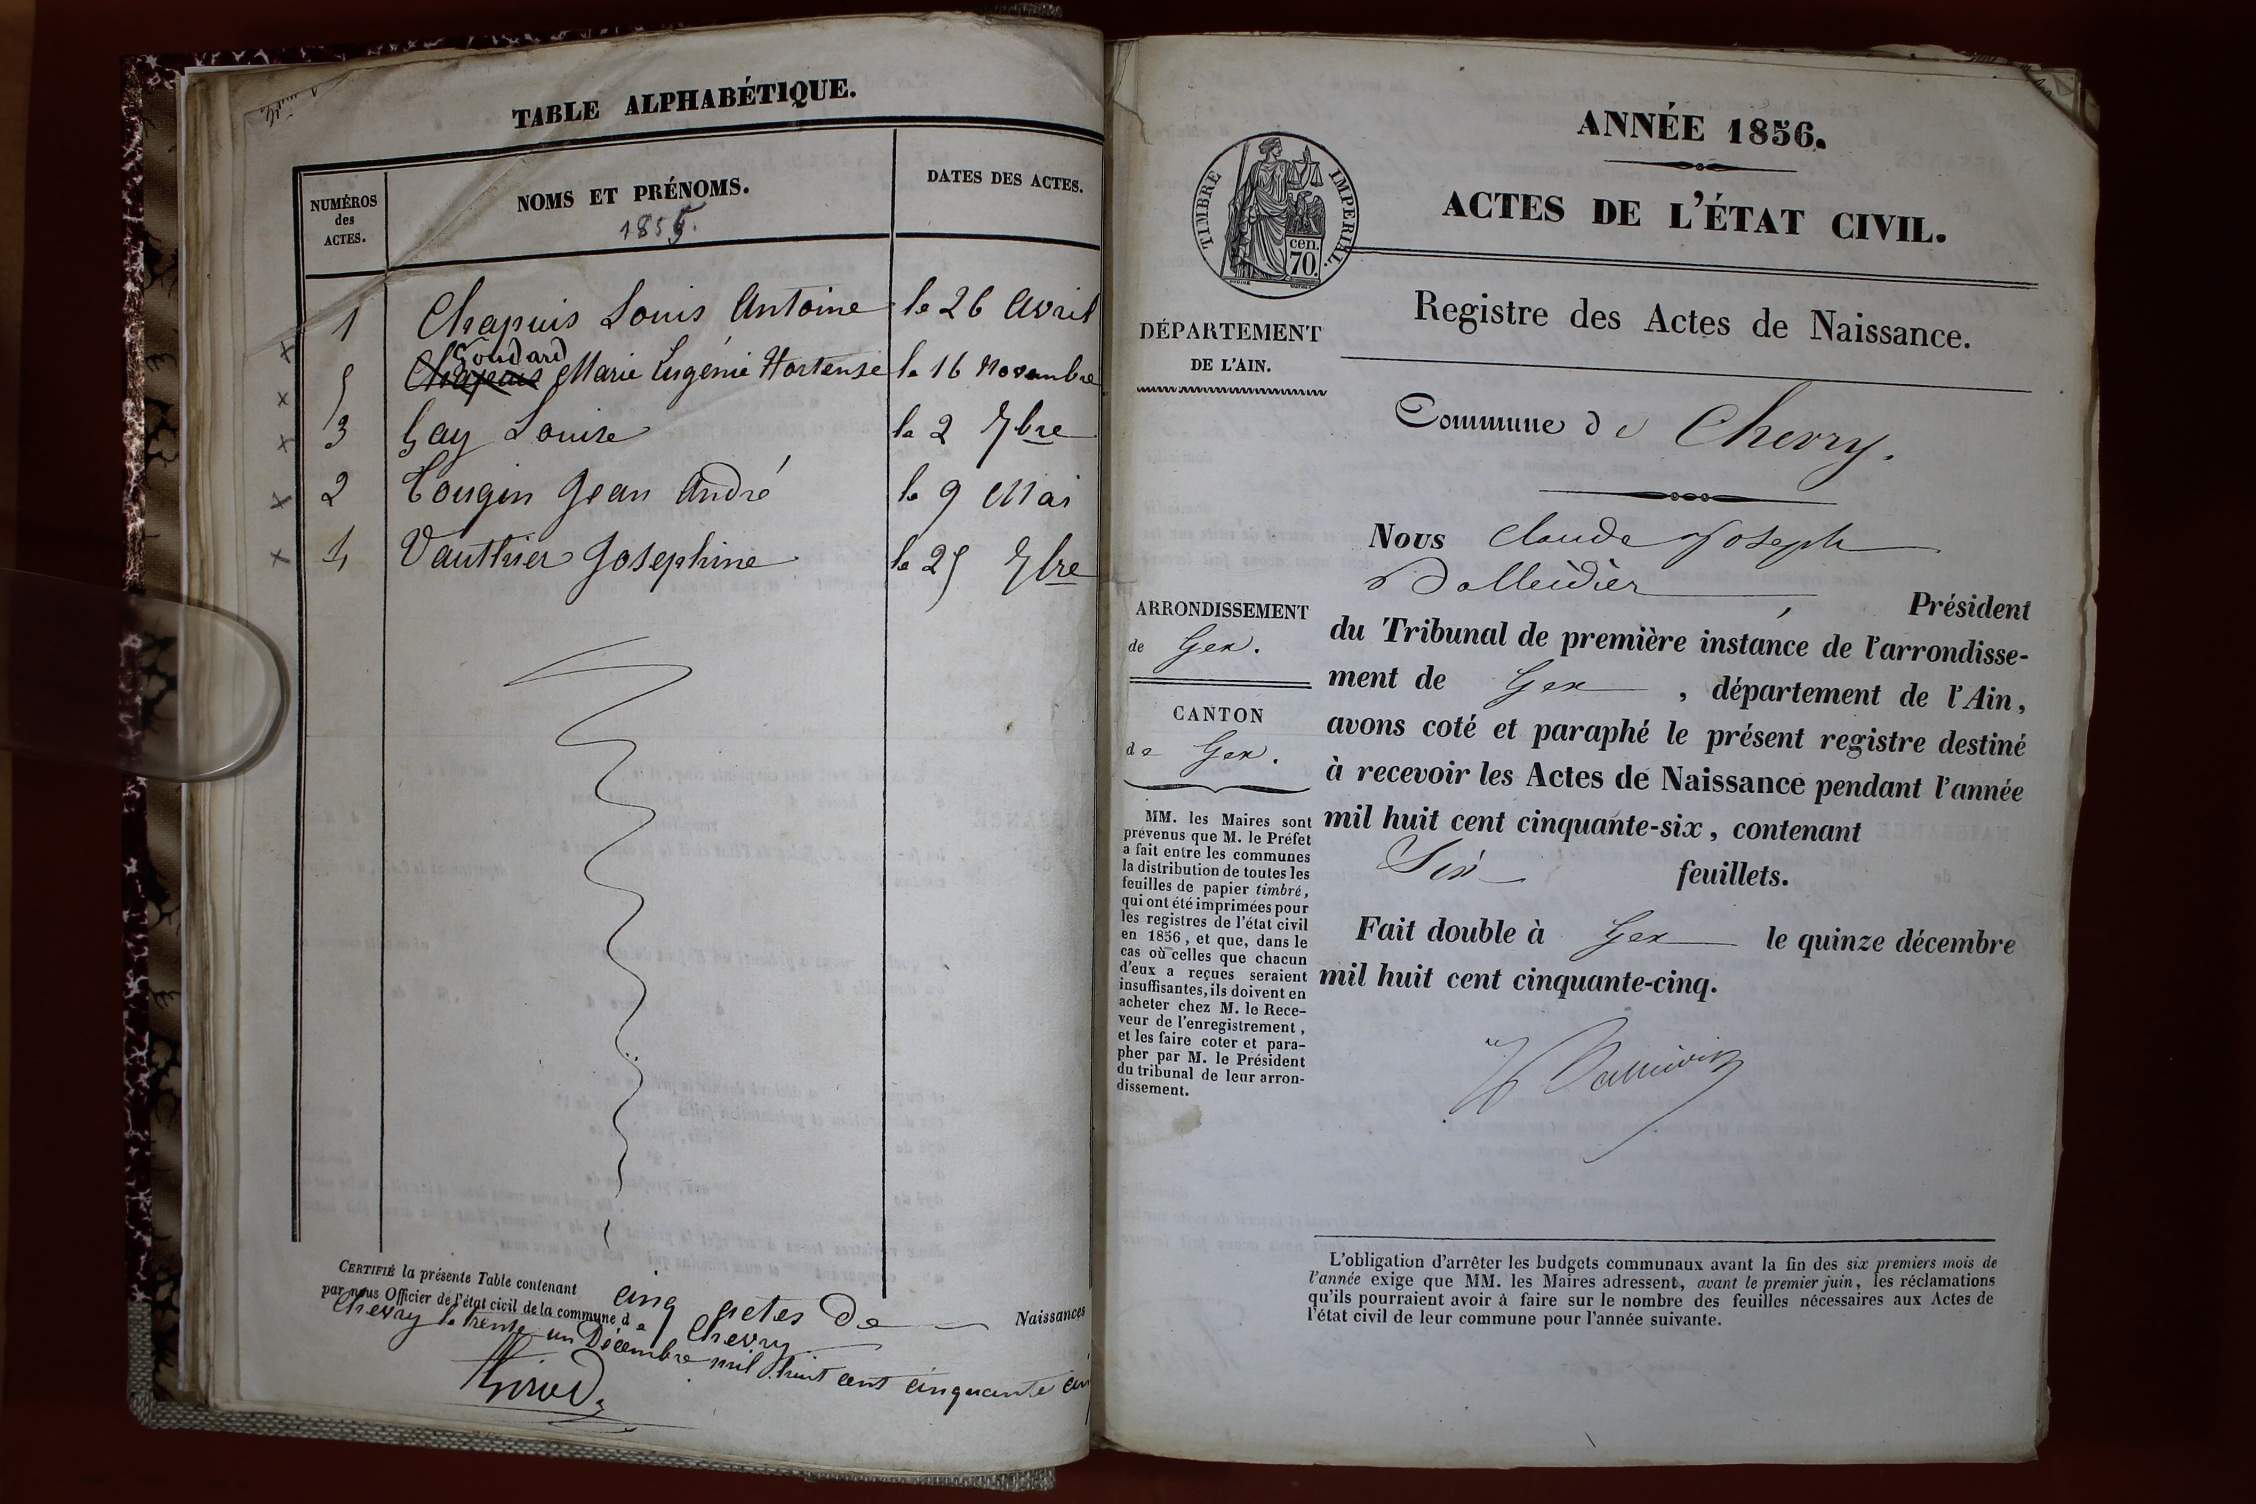 TABLE ALPHABÉTIQUE.
NUMÉROS
des
ACTES.
NOMS ET PRÉNOMS.
1855.
DATES DES ACTES.
1 Chapuis Louis Antoine le 26 Avril
Goudard
5 Chapuis Marie Eugénie Hortense le 16 Novembre
3 Gay Louise le 2 7bre
2 Tougin Jean André le 9 Mai
4 Vauthier Josephine le 25 7bre
CERTIFIÉ la présente Table contenant cinq actes de Naissances
par nous Officier de l'état civil de la commune de Chevry
Chevry le trente un Décembre mil huit cent cinquante
Girod
ANNÉE 1856.
ACTES DE L'ÉTAT CIVIL.
TIMBRE IMPERIAL.
cen.
70.
Registre des Actes de Naissance.
DÉPARTEMENT
DE L'AIN.
Commune de Chevry.
Nous Claude Joseph
Président
du Tribunal de première instance de l'arrondisse-
ment de Gex, département de l'Ain,
avons coté et paraphé le présent registre destiné
à recevoir les Actes de Naissance pendant l'année
mil huit cent cinquante-six, contenant
Six feuillets.
Fait double à Gex le quinze décembre
mil huit cent cinquante-cinq.
ARRONDISSEMENT
de Gex.
CANTON
de Gex.
MM. les Maires sont
prévenus que M. le Préfet
a fait entre les communes
la distribution de toutes les
feuilles de papier timbré,
qui ont été imprimées pour
les registres de l'état civil
en 1856, et que, dans le
cas où celles que chacun
d'eux a reçues seraient
insuffisantes, ils doivent en
acheter chez M. le Rece-
veur de l'enregistrement,
et les faire coter et para-
pher par M. le Président
du tribunal de leur arron-
dissement.
L'obligation d'arrêter les budgets communaux avant la fin des six premiers mois de
l'année exige que MM. les Maires adressent, avant le premier juin, les réclamations
qu'ils pourraient avoir à faire sur le nombre des feuilles nécessaires aux Actes de
l'état civil de leur commune pour l'année suivante.